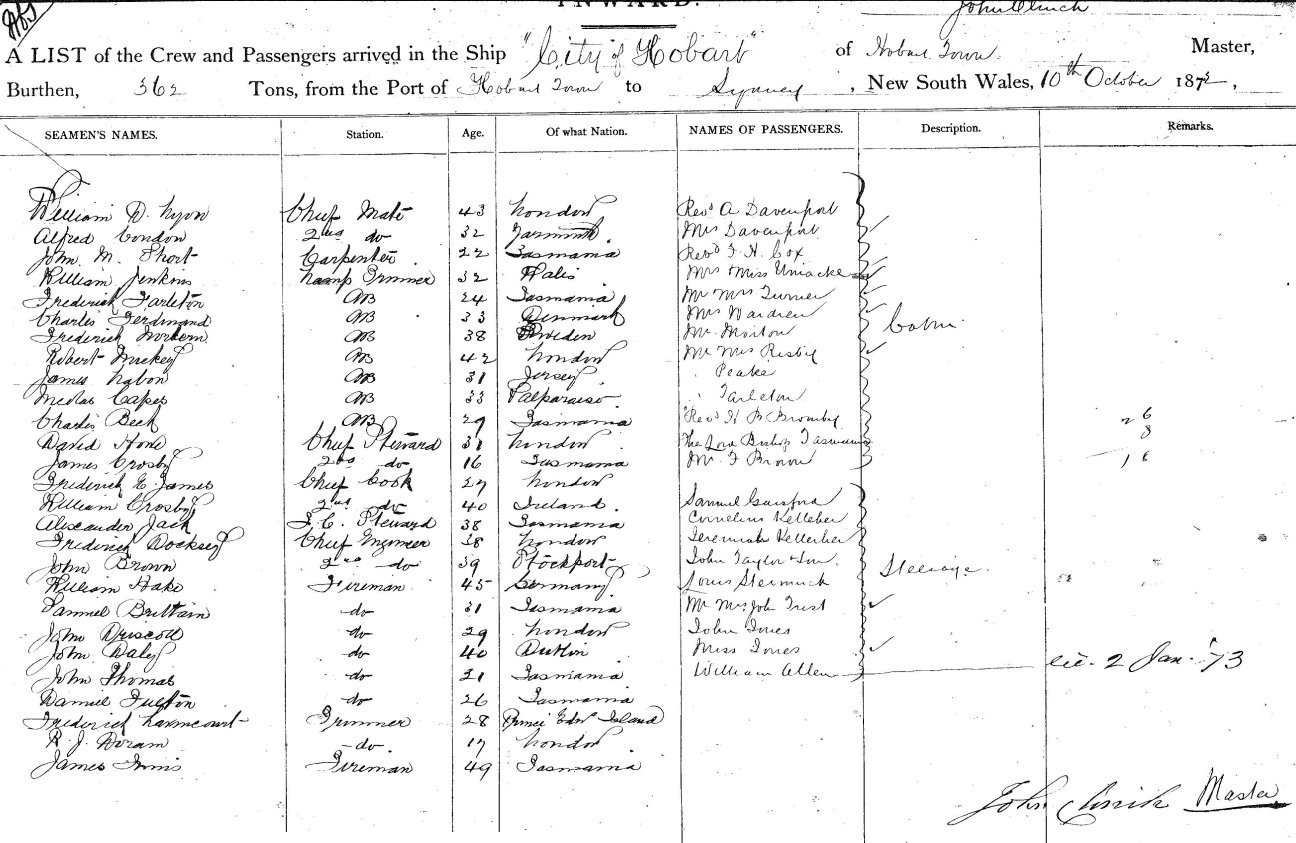 INWARD.
John Clinch
A LIST of the Crew and Passengers arrived in the Ship "City of Hobart" of Hobart Town Master,
Burthen, 362 Tons, from the Port of Hobart Town to Sydney, New South Wales, 10th October 1872,
SEAMEN'S NAMES. Station. Age. Of what Nation. NAMES OF PASSENGERS. Description. Remarks.
William D. Lyon Chief Mate 43 London Revd A Davenport
Alfred Condon 2nd do 32 Yarmouth Mrs Davenport
John M. Short Carpenter 22 Tasmania Revd F H. Cox
William Jenkins Lamp Trimmer 32 Wales Mrs Miss Uniacke
Frederick Tarleton AB 24 Tasmania Mr Mrs Turner
Charles Ferdinand AB 33 Denmark Mrs Cabin
Frederick AB 38 Sweden Mr Morton
Robert AB 42 London Mr Mrs Risby
James AB 31 Jersey Peake
Capes AB 33 Valparaiso Tarleton
Charles Beck AB 29 Tasmania Revd H B Bromby 26
David Hone Chief Steward 31 London The Lord Bishop Tasmania 8
James Crosby 2nd do 16 Tasmania Mr F Brown
Frederick E. James Chief Cook 27 London
William Crosby 2nd do 40 Ireland. Samuel
Alexander Jack S. C. Steward 38 Tasmania Cornelius Kelleher
Frederick Chief Engineer 38 London Jeremiah Kelleher
John Brown 2nd do 39 Stockport John Taylor & Son Steerage.
William Hake Fireman 45 Germany Louis
Samuel Brittain do 31 Tasmania Mr Mrs John Trist
John Driscoll do 29 London John Jones
John Daley do 40 Dublin Miss Jones
John Thomas do 21 Tasmania William Allen 2 Jan. 73
Daniel Fulton do 26 Tasmania
Frederick Trimmer 28 Prince Edwd Island
R. J. do. 17 London
James Innis Fireman 49 Tasmania
John Clinch Master